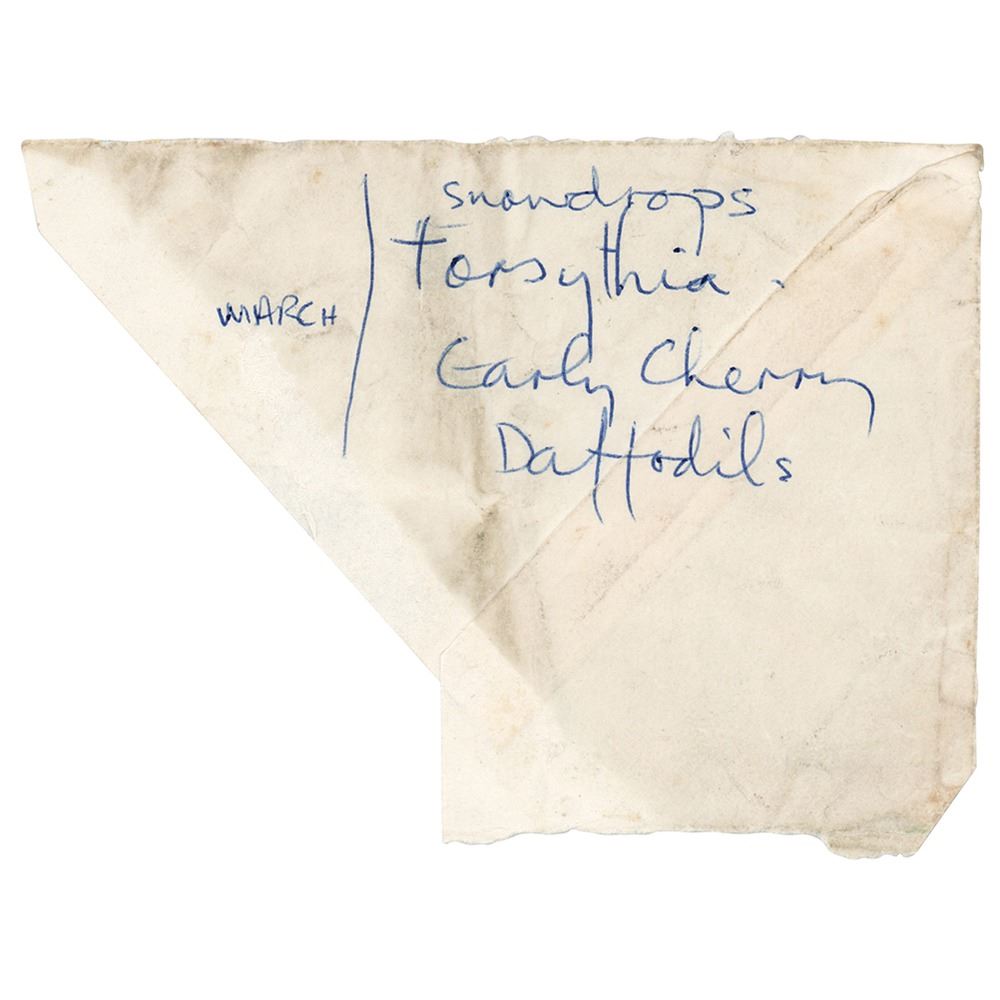 snowdrops
Forsythia.
MARCH
Early Cherry
Daffodils